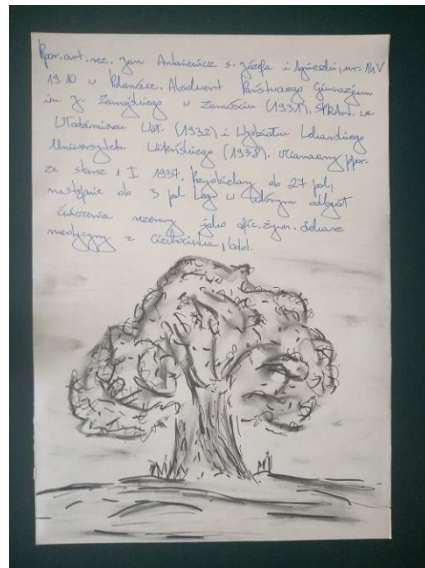 Ppor. art. rez. Jan Antoniewicz s. Józefa i Agnieszki, ur. 14 V
1910 w Polanówce. Absolwent Państwowego Gimnazjum
im. J. Zamojskiego w Zamościu (1931), SPRArt. we
Włodzimierzu Woł. (1932) i Wydziału Lekarskiego
Uniwersytetu Wileńskiego (1938). Mianowany ppor.
ze starsz. 1 I 1937. Przydzielony do 27 pal,
następnie do 3 pal Leg w którym odbywał
ćwiczenia rezerwy jako ofic. żyw. Lekarz
medycyny z Ciechocinka,